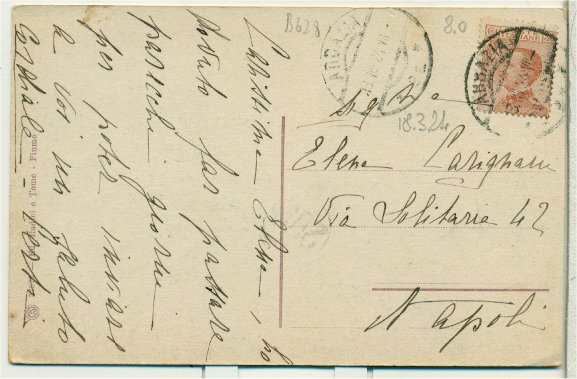 B628
8.0
ABBAZIA
ABBAZIA
Sig.na
18.3.24
Elena Carignani
Via Solitaria 42
Napoli
Carissima Elena, ho
dovuto far passare
parecchi giorni
per poter inviare
a voi un saluto
Cordiale -
e Tome - Fiume